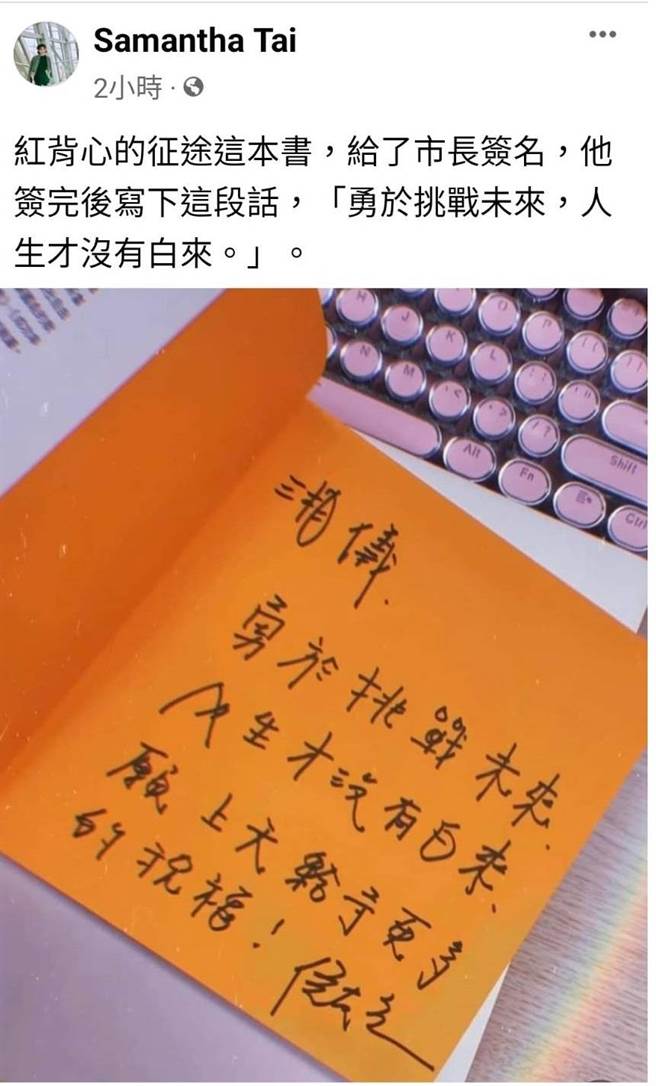 Samantha Tai
2小時
紅背心的征途這本書，給了市長簽名，他
簽完後寫下這段話，「勇於挑戰未來，人
生才沒有白來。」。
H
J
K
L
O
P
N
M
Alt
Fn
Shift
Ctrl
儀.
勇於挑戰未來.
人生才沒有白來、
願上天給予更多
的祝福！侯友宜